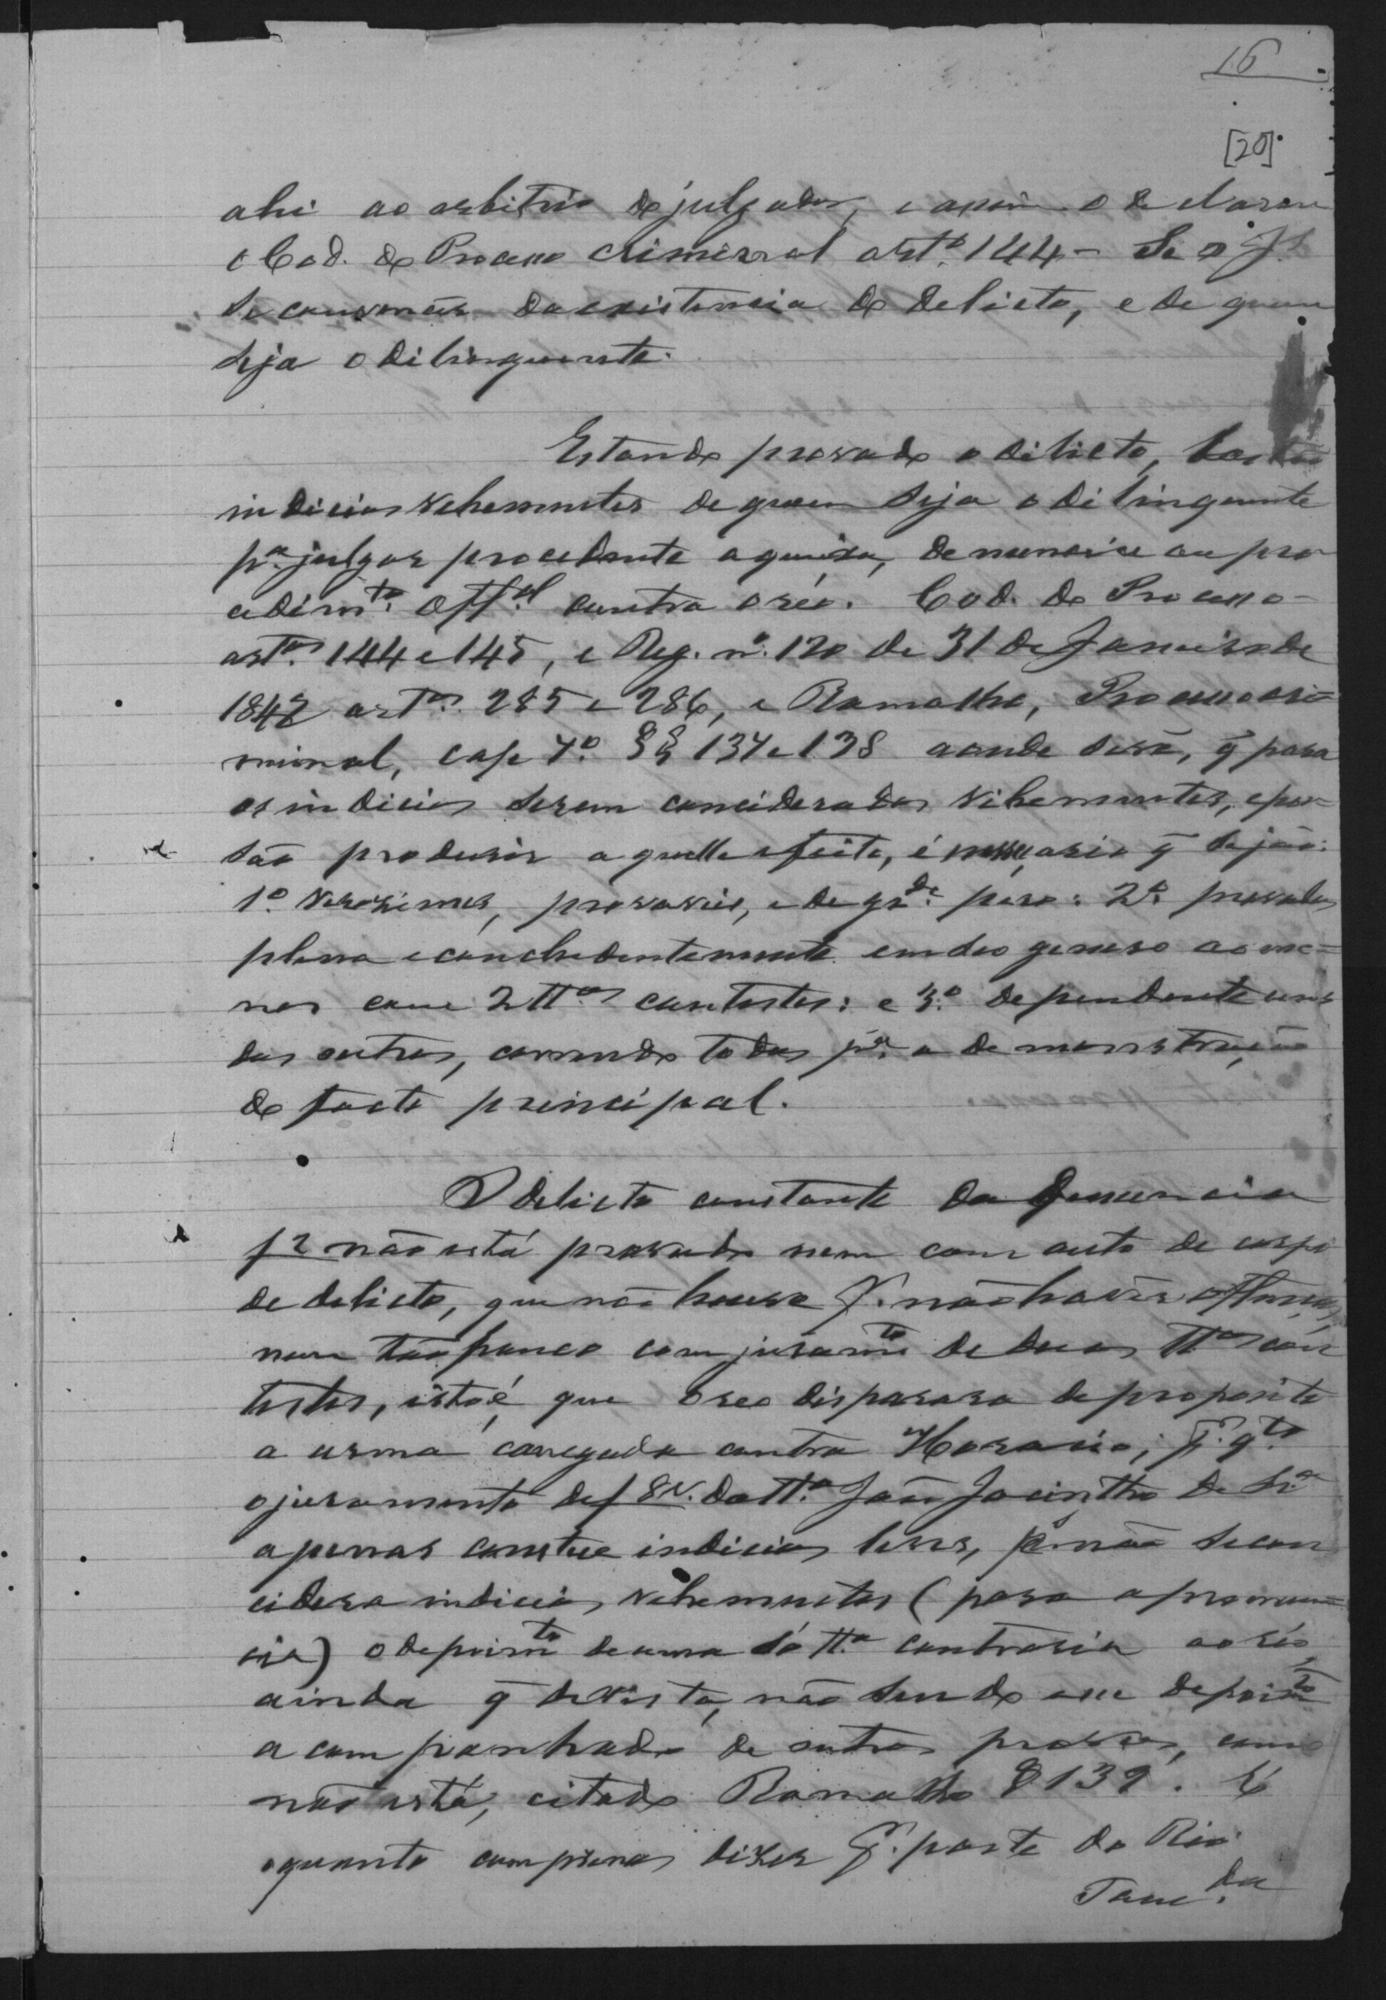 16
[20]
ahi ao arbitrio do julgador, e assim o declarou
o Cod. do Processo criminal art.º 144 - Se o J.
se convencer da existencia do delicto, e de quem
seja o dilinquente.
Estando provado o dilicto, basta
indicios vehementes de quem seja o dilinquente
p.ª julgar procedente a queixa, denuncia ou pro
cedim.to off.al contra o réo. Cod. do Processo -
art.os 144 e 145, e Reg. nº. 120 de 31 de Janeiro de
1842 art.os 285 e 286, e Ramalho, Processo cri=
minal, cap 7.º §§ 137 e 138 aonde será, q̃ para
os indicios serem conciderados vihementes, e pos=
são produsir aquelle effeito, é nessçario q̃ sejão:
1.º verosimes, provaveis, e de gr.de peso: 2.º provados
plena e concludentemente em seo genero ao me=
nos com 2 tt.as contestes: e 3.º dependente uns
dos outros, correndo todos p.ª a demonstração
do facto principal.
O delicto constante da denuncia
f2 não está provado nem com auto de corpo
de delicto, que não houve p.r não haver offensas,
nem tão pouco com juram.to de duas tt.as con
testes, isto é, que o reo disparara de proposito
a arma carregada contra Horacio; p.r q.to
o juramento de f 8v. da tt.ª João Jacintho de S.ª
apenas constue indicios leves, p.s não se con
cidera indicios vehementes (para a pronun=
cia) o depoim.to de uma só tt.ª contraria ao réo,
ainda q̃ de vista, não sendo esse depoim.to
acompanhado de outras provas, como
não está, citado Ramalho § 139. É
o quanto cumprenos diser p.r parte do Réo.